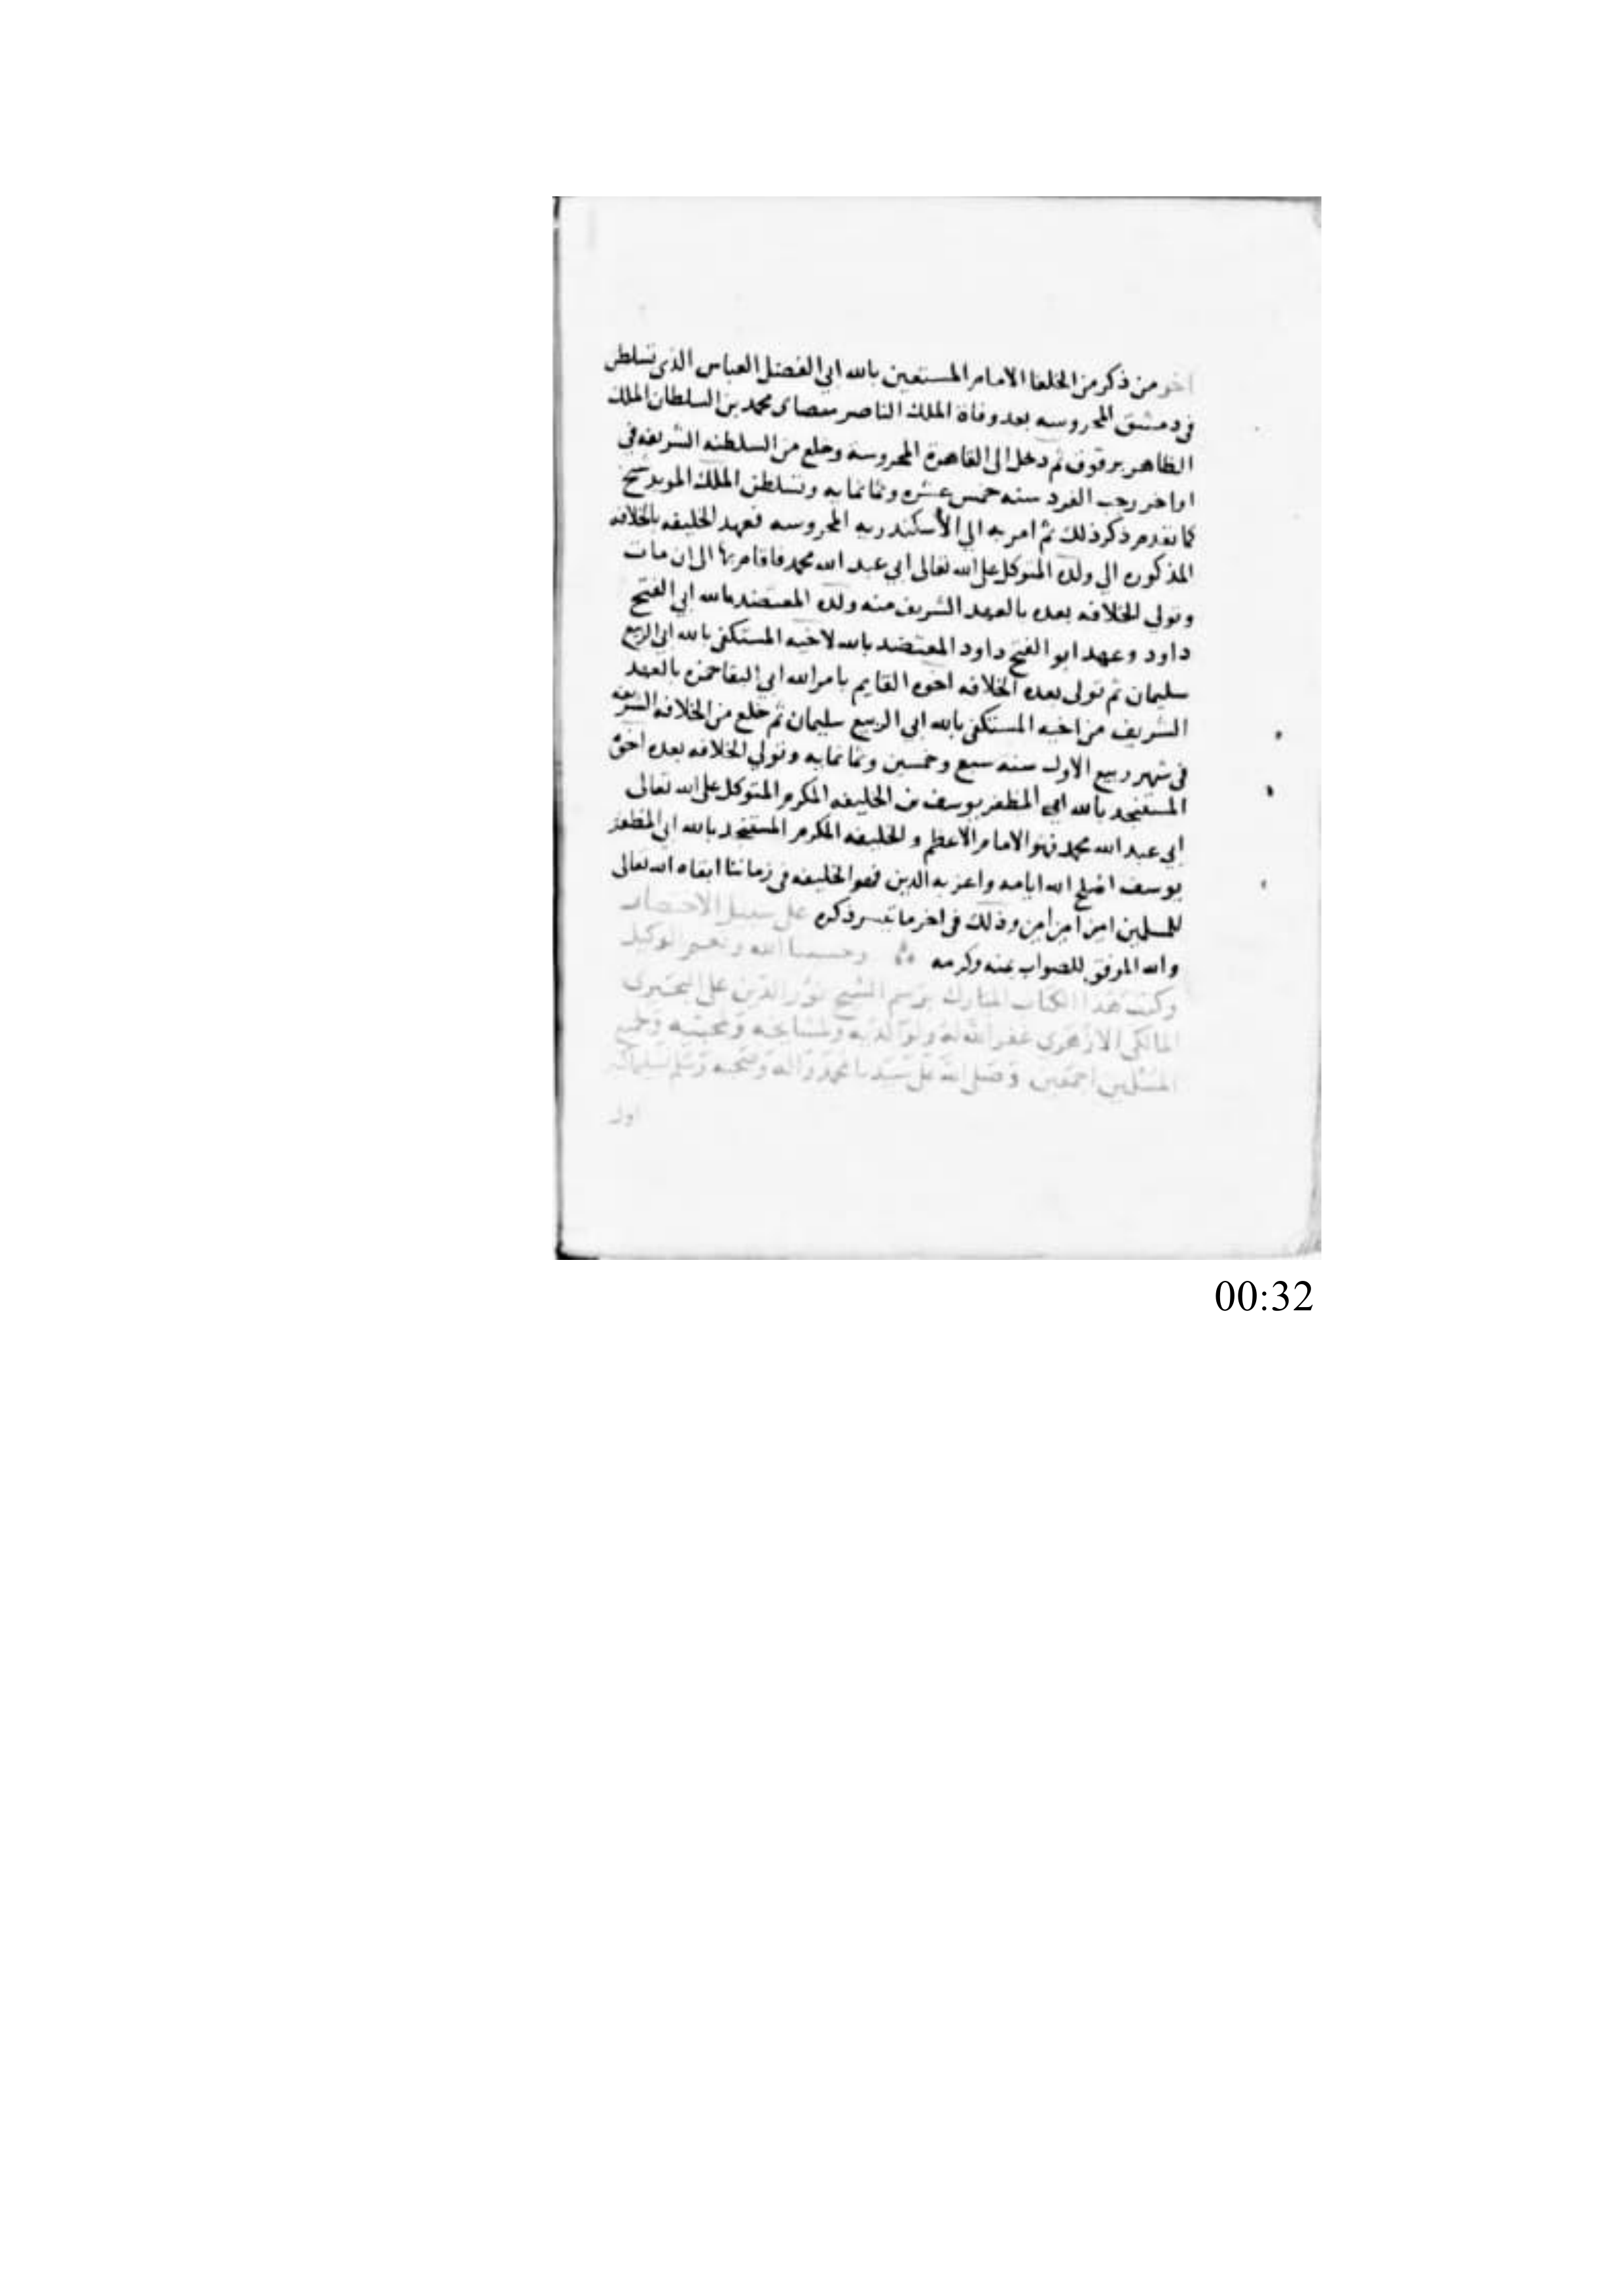 اخر من ذكر من الخلفا الامام المستعين بالله ابي الفضل العباس الذي تسلطن
في دمشق المحروسه بعد وفاة الملك الناصر محمد بن السلطان الملك
الظاهر برقوق ثم دخل الى القاهرة المحروسة وخلع من السلطنه الشريفه في
اواخر رجب الفرد سنه خمس عشره وثمانمايه وتسلطن الملك المويد شيخ
كما تقدم ذكر ذلك ثم امر به الي الأسكندريه المحروسه فعهد الخليفه بالخلافه
المذكوره الي ولده المتوكل على الله تعالى ابي عبد الله محمد فاقام بها الى ان مات
وتولي الخلافه بعده بالعهد الشريف منه ولده المعتضد بالله ابي الفتح
داود وعهد ابو الفتح داود المعتضد بالله لاخيه المستكفي بالله ابي الربيع
سليمان ثم تولى بعده الخلافه اخوه القايم بامر الله ابي البقا حمزه بالعهد
الشريف من اخيه المستكفي بالله ابي الربيع سليمان ثم خلع من الخلافه الشريفه
في شهر ربيع الاول سنه سبع وخمسين وثمانمايه وتولي الخلافه بعده اخوه
المستنجد بالله ابي المظفر يوسف بن الخليفه المكرم المتوكل على الله تعالى
ابي عبد الله محمد فهو الامام الاعظم والخليفه المكرم المستنجد بالله ابي المظفر
يوسف الله ايامه واعز به الدين فهو الخليفه في زماننا ابقاه الله تعالى
للمسلمين امين امين امين وذلك في اخر ما تيسر ذكره على سبيل الاختصار
والله الموفق للصواب بمنه وكرمه وحسبنا الله ونعم الوكيل
وكتب هذا الكتاب المبارك برسم الشيخ نور الدين على البحيرى
المالكي الازهرى غفر الله له ولوالديه ولمشايخه ومحبيه وجميع
المسلمين اجمعين وصلى الله على سيدنا محمد وآله وصحبه وسلم تسليما
00:32